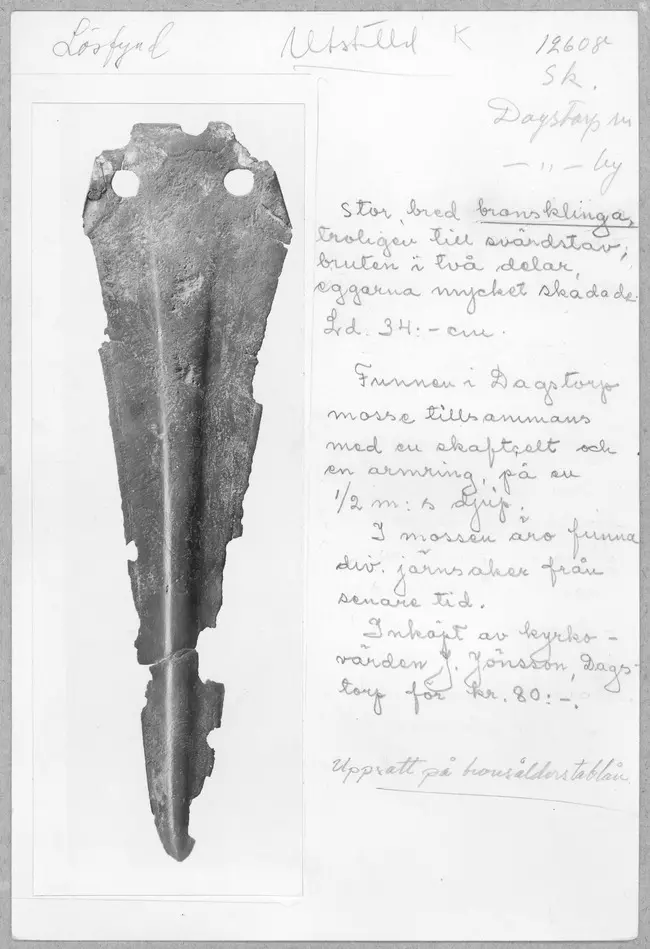 Lösfynd
Utställd K
12608
Sk.
Dagstorp sn
— „ — by
Stor, bred bronsklinga,
troligen till svärdstav;
bruten i två delar,
eggarna mycket skadade.
Ld. 34:- cm.
Funnen i Dagstorps
mosse tillsammans
med en skaftcelt och
en armring, på en
1/2 m:s djup.
I mossen äro funna
div. järnsaker från
senare tid.
Inköpt av kyrko-
värden J. Jönsson, Dags-
torp för kr. 80:-.
Uppsatt på bronsålderstablån